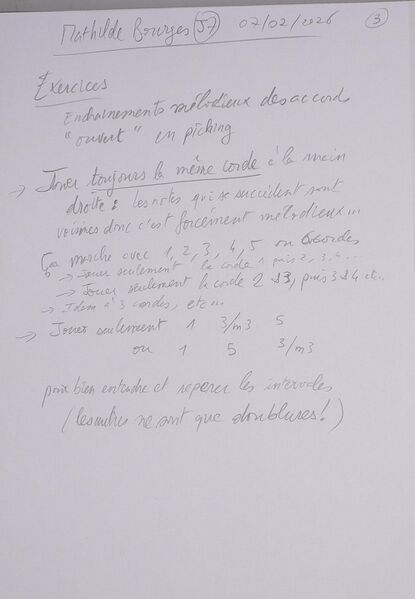 Mathilde Bourges (57) 07/02/2026 3
Exercices
Enchainements mélodieux des accords
"ouvert" en picking
→ Jouer toujours la même corde à la main
droite : les notes qui se succèdent sont
voisines donc c'est forcément mélodieux...
Ça marche avec 1, 2, 3, 4, 5 ou 6 cordes
→ Jouer seulement la corde 1 puis 2, 3, 4...
→ Jouer seulement la corde 2 & 3, puis 3 & 4 etc..
→ Idem à 3 cordes, etc...
→ Jouer seulement 1 3/m3 5
ou 1 5 3/m3
pour bien entendre et repérer les intervales
(les autres ne sont que doublures!)